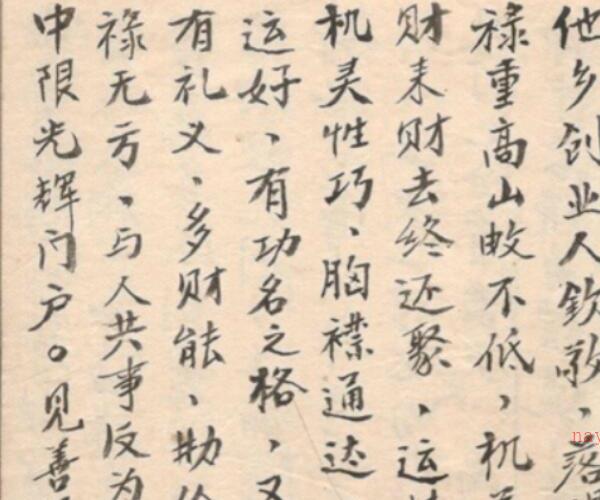 他乡创业人钦敬，落
禄重高山畋不低，机
财来财去终还聚，运
机灵性巧、胸襟通达
运好、有功名之格，又
有礼义、多财能、勤俭
禄无亏、与人共事反为
中限光辉门户。见善